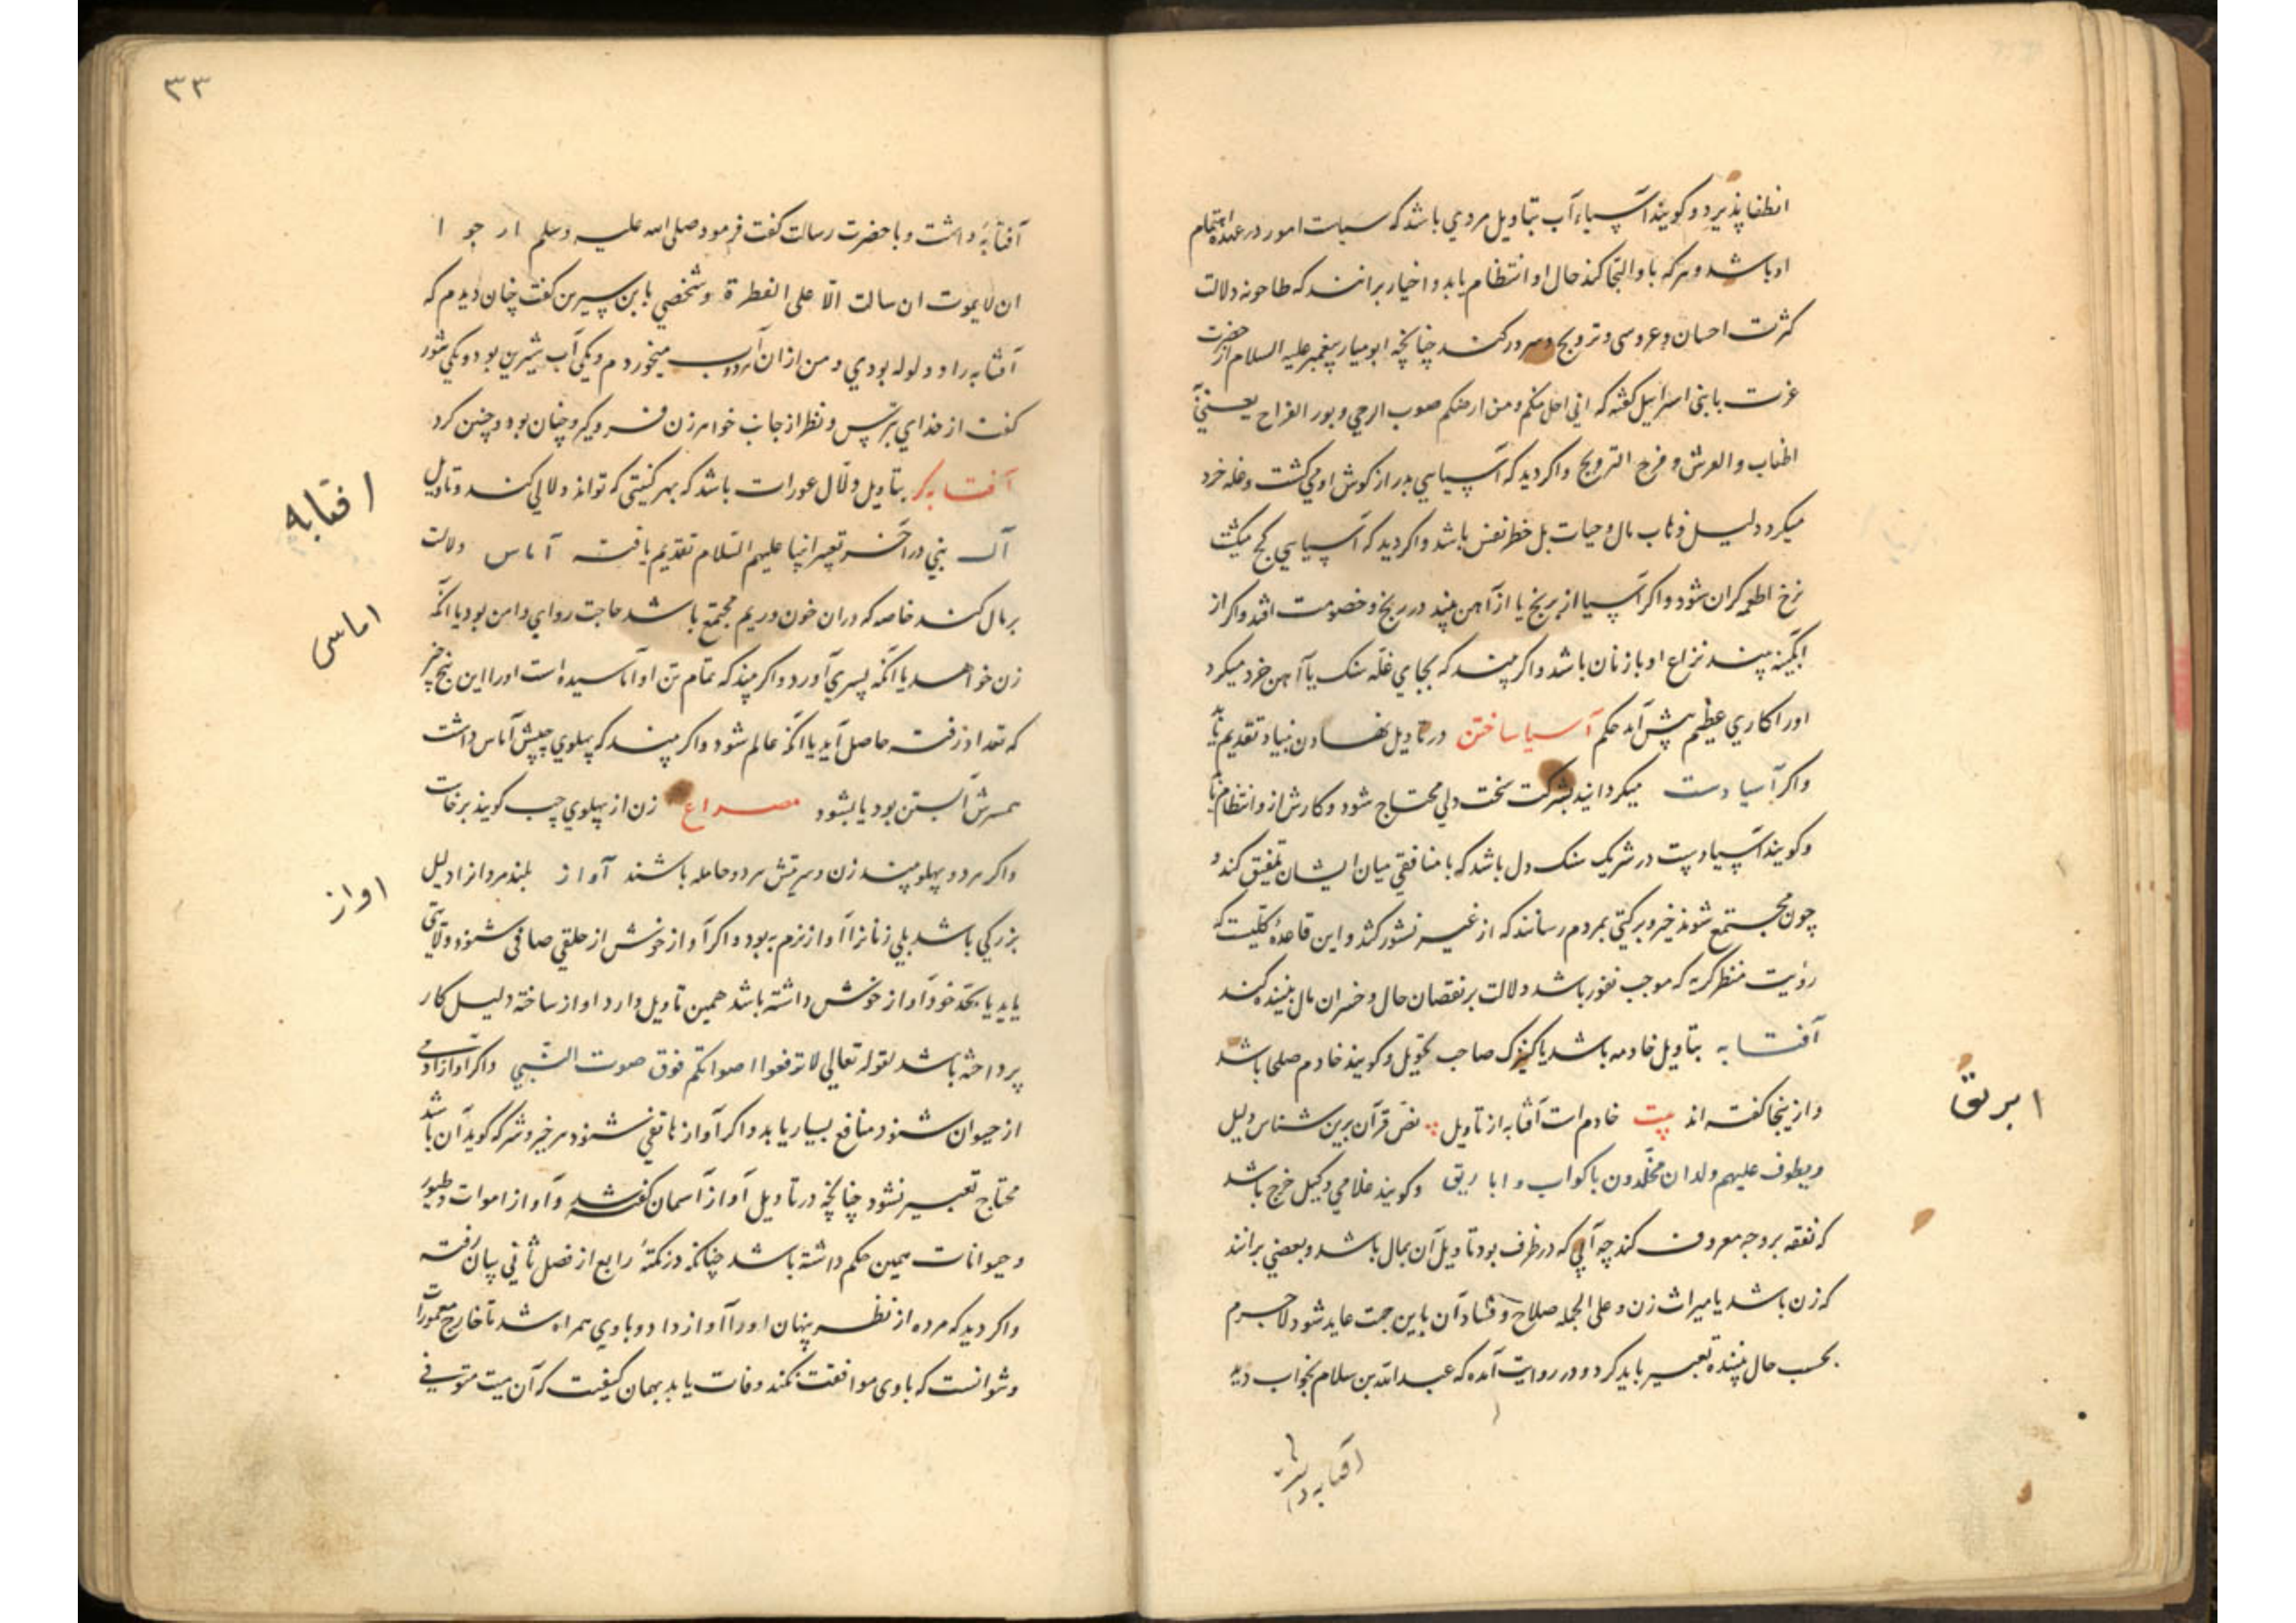 انطفا پذیرد و کویند آسیاء آب بتاویل مردي باشد که سیاست امور در عهده اهتمام
او باشد و هر که با و التجا کند حال او انتظام یابد و اخیار برانند که طاحونه دلالت
کثرت احسان و عروسی و ترویج و سرور کند چنانچه ابومیار پیغمبر علیه السلام از حضرت
عزت با بنی اسراییل کفته که انی احل منکم و من ارضکم صوب الرحي و بور الفراح یعنی
اطناب و العرش و فرح الترویح و اکر دید که آسیایي بدر از کوش او مي کشت و غله خرد
میکرد دلیل ذهاب مال و حیات بل خطر نفس باشد و اکر دید که آسیایي کج میکشت
نرخ اطعمه کران شود و اکر آسیا از برنج یا از آهن بیند در رنج و خصومت افتد و اکر از
ابکینه بیند نزاع او با زنان باشد و اکر بیند که بجاي غله سنک یا آهن خرد میکرد
او را کاري عظیم پیش آید حکم آسیا ساختن در تاویل نهادن بنیاد تقدیم یابد
و اکر آسیا دست میکرداند بشرکت سخت دلي محتاج شود و کارش ازو انتظام یابد
و کویند آسیا دست در شریک سنک دل باشد که با منافقي میان ایشان تلفیق کند و
چون مجتمع شوند خیر و برکتي بمردم رسانند که از غیر نشور کند و این قاعدهٔ کلیت که
رؤیت منظر کریه که موجب نفور باشد دلالت بر نقصان حال و خسران مال بیننده کند
آفتابه بتاویل خادمه باشد یا کنیزک صاحب تحویل و کویند خادم صلحا باشد
و از ینجا کفته اند بیت خادم است آفتابه از تاویل نص قرآن برین شناس دلیل
و یطوف علیهم ولدان مخلدون باکواب و اباریق و کویند غلامي وکیل خرج باشد
که نفقه بر وجه معروف کند چه آبي که در ظرف بود تاویل آن بمال باشد و بعضي برانند
که زن باشد یا میراث زن و علی الجمله صلاح و فساد آن باین جهت عاید شود لاجرم
بحسب حال بیننده تعبیر باید کرد و در روایت آمده که عبدالله بن سلام بخواب دید
آفتابه داشت
ابریق
۳۳
آفتابهٔ داشت و با حضرت رسالت کفت فرمود صلی الله علیه و سلم ارجو ا
ان لا یموت ان سالت الّا علی الفطرة و شخصي با بن سیرین کفت چنان دیدم که
آفتابه را دو لوله بودي و من از ان هر دو آب میخوردم و یکي آب شیرین بود و یکي شور
کفت از خداي بترس و نظر از جانب خواهر زن فرو کیر و چنان بود و چنین کرد
آفتابه کر بتاویل دلّال عورات باشد که بهر کنیتي که تواند دلالي کند و تاویل
آل نبي در آخر تعبیر انبیا علیهم السّلام تقدیم یافته آماس دلالت
بر مال کند خاصه که در ان خون و ریم مجتمع باشد حاجت روایي دامن بود یا آنکه
زن خواهد یا آنکه پسري آورد و اکر بیند که تمام تن او آماسیده است او را این پنج چیز
که تعداد رفته حاصل آید یا آنکه عالم شود و اکر بیند که پهلوي چپش آماس داشت
همسرش آبستن بود یا بشود مصراع زن از پهلوي چپ کویند برخاست
و اکر هر دو پهلو بیند زن و سریتش هر دو حامله باشند آواز بلند مرد از دلیل
بزرکي باشد بلي زنانرا آواز نرم به بود و اکر آواز خوش از حلقي صافي شنود ولایتي
یابد یا بحدّ خود آواز خوش داشته باشد همین تاویل دارد و آواز ساخته دلیل کار
پرداخته باشد لقوله تعالي لا ترفعوا اصواتکم فوق صوت النّبي و اکر آواز آدمي
از حیوان شنود منافع بسیار یابد و اکر آواز هاتفي شنود هر خیر و شر که کوید آن باشد
محتاج تعبیر نشود چنانچه در تاویل آواز آسمان کفته شد و آواز اموات و طیور
و حیوانات همین حکم داشته باشد چنانکه در نکتهٔ رابع از فصل ثاني بیان رفته
و اکر دید که مرده از نظر پنهان او را آواز داد و با وي همراه شد تا خارج معمورات
و نتوانست که با وی موافقت نکند وفات یابد بهمان کیفیت که آن میت متوفي
افتابه
اماس
اواز